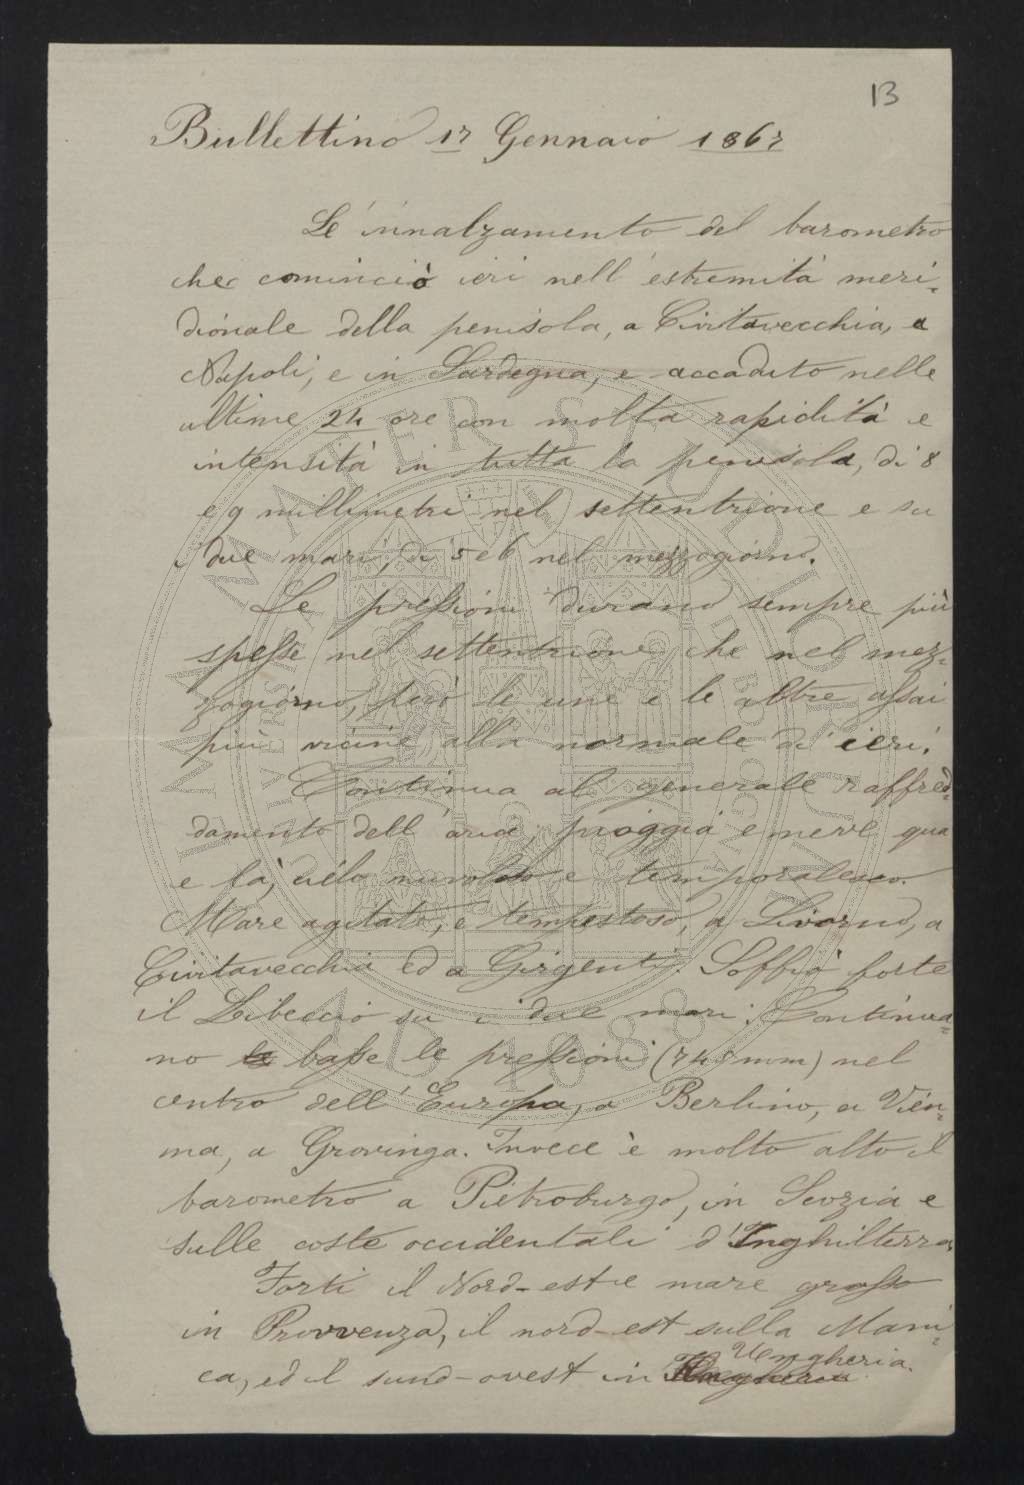 13
Bullettino 17 Gennaio 1867
Le innalzamento del barometro
che cominciò ieri nell' estremità meri-
dionale della penisola, a Civitavecchia, a
Napoli, e in Sardegna, e accaduto nelle
ultime 24 ore con molta rapidità e
intensità in tutta la penisola, di 8
e 9 millimetri nel settentrione e su
i due mari, di 5 e 6 nel mezzogiorno.
Le pressioni durano sempre più
spesse nel settentrione che nel mez-
zogiorno, però le une e le altre assai
più vicine alla normale di ieri.
Continua al generale raffred-
damento dell' aria, pioggia e neve qua
e là, cielo nuvoloso e temporalesco.
Mare agitato, e tempestoso, a Livorno, a
Civitavecchia ed a Girgenti. Soffiò forte
il Libeccio su i due mari. Continua-
no basse le pressioni (745 mm) nel
centro dell' Europa, a Berlino, a Vien-
na, a Groninga. Invece è molto alto il
barometro a Pietroburgo, in Scozia e
sulle coste occidentali d'Inghilterra
Forti il Nord-est e mare grosso
in Provvenza, il nord-est sulla Mani-
ca, ed il sund-ovest in Ungheria.
ALMA MATER STUDIORUM
A.D. 1088